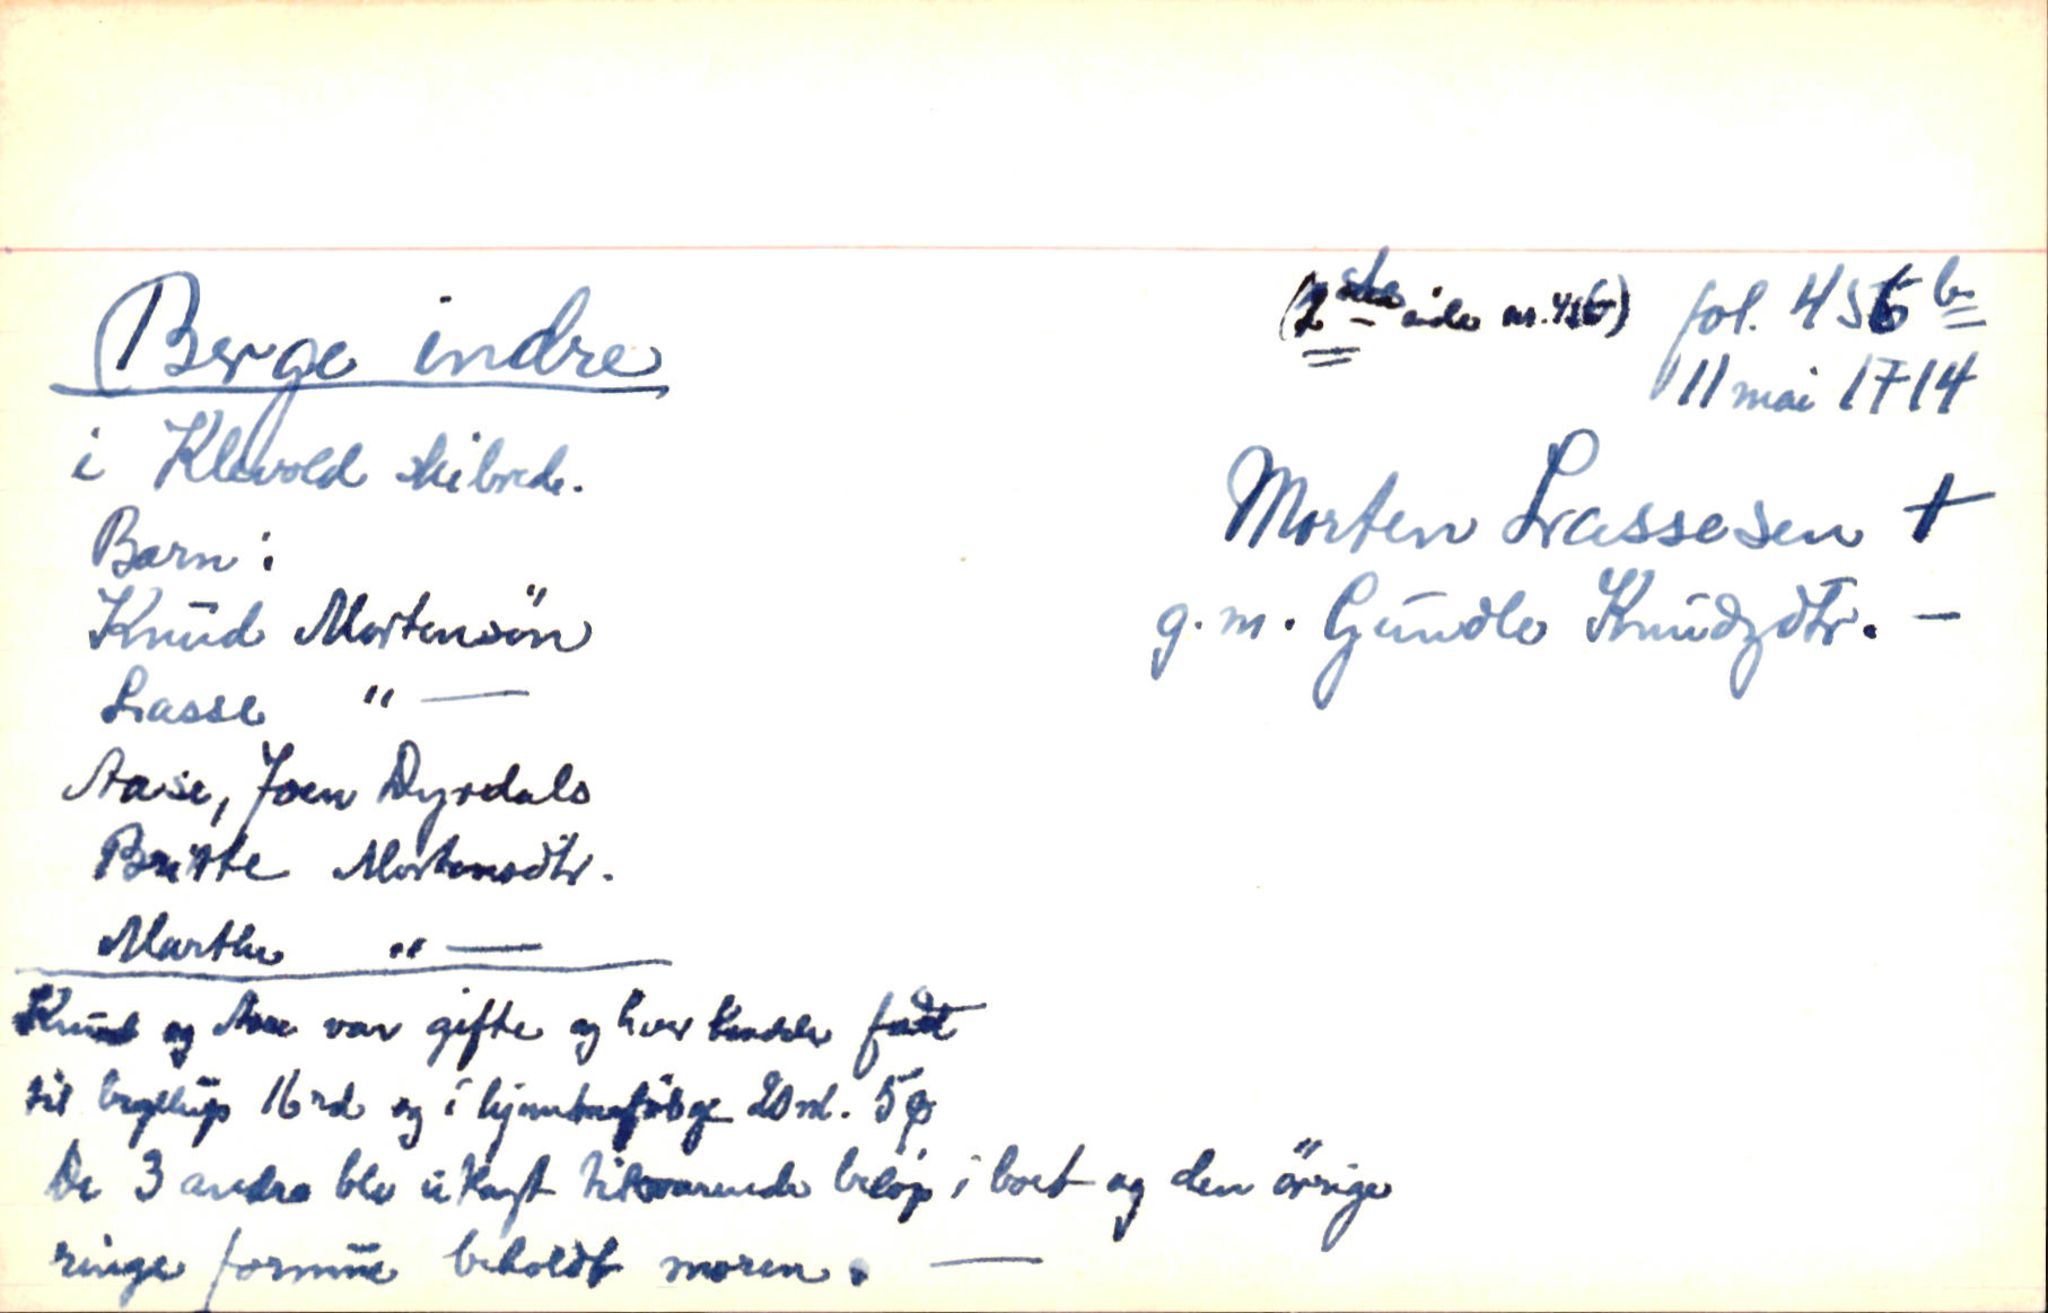 Berge indre
(2den side nr. 456) fol. 456 b
11 mai 1714
i Klevold skibrede.
Morten Lassesen +
g. m. Gundle Knudzdtr. —
Barn:
Knud Mortensön
Lasse " —
Aase, Joen Dyrdals
Britte Mortensdtr.
Marthe " —
Knud og Aase var gifte og hver hadde fådt
til bryllup 16 rd og i hjemmefölge 20 rd. 5
De 3 andre blev utlagt tilsvarende belöp i boet og den övrige
ringe formue beholdt moren. —